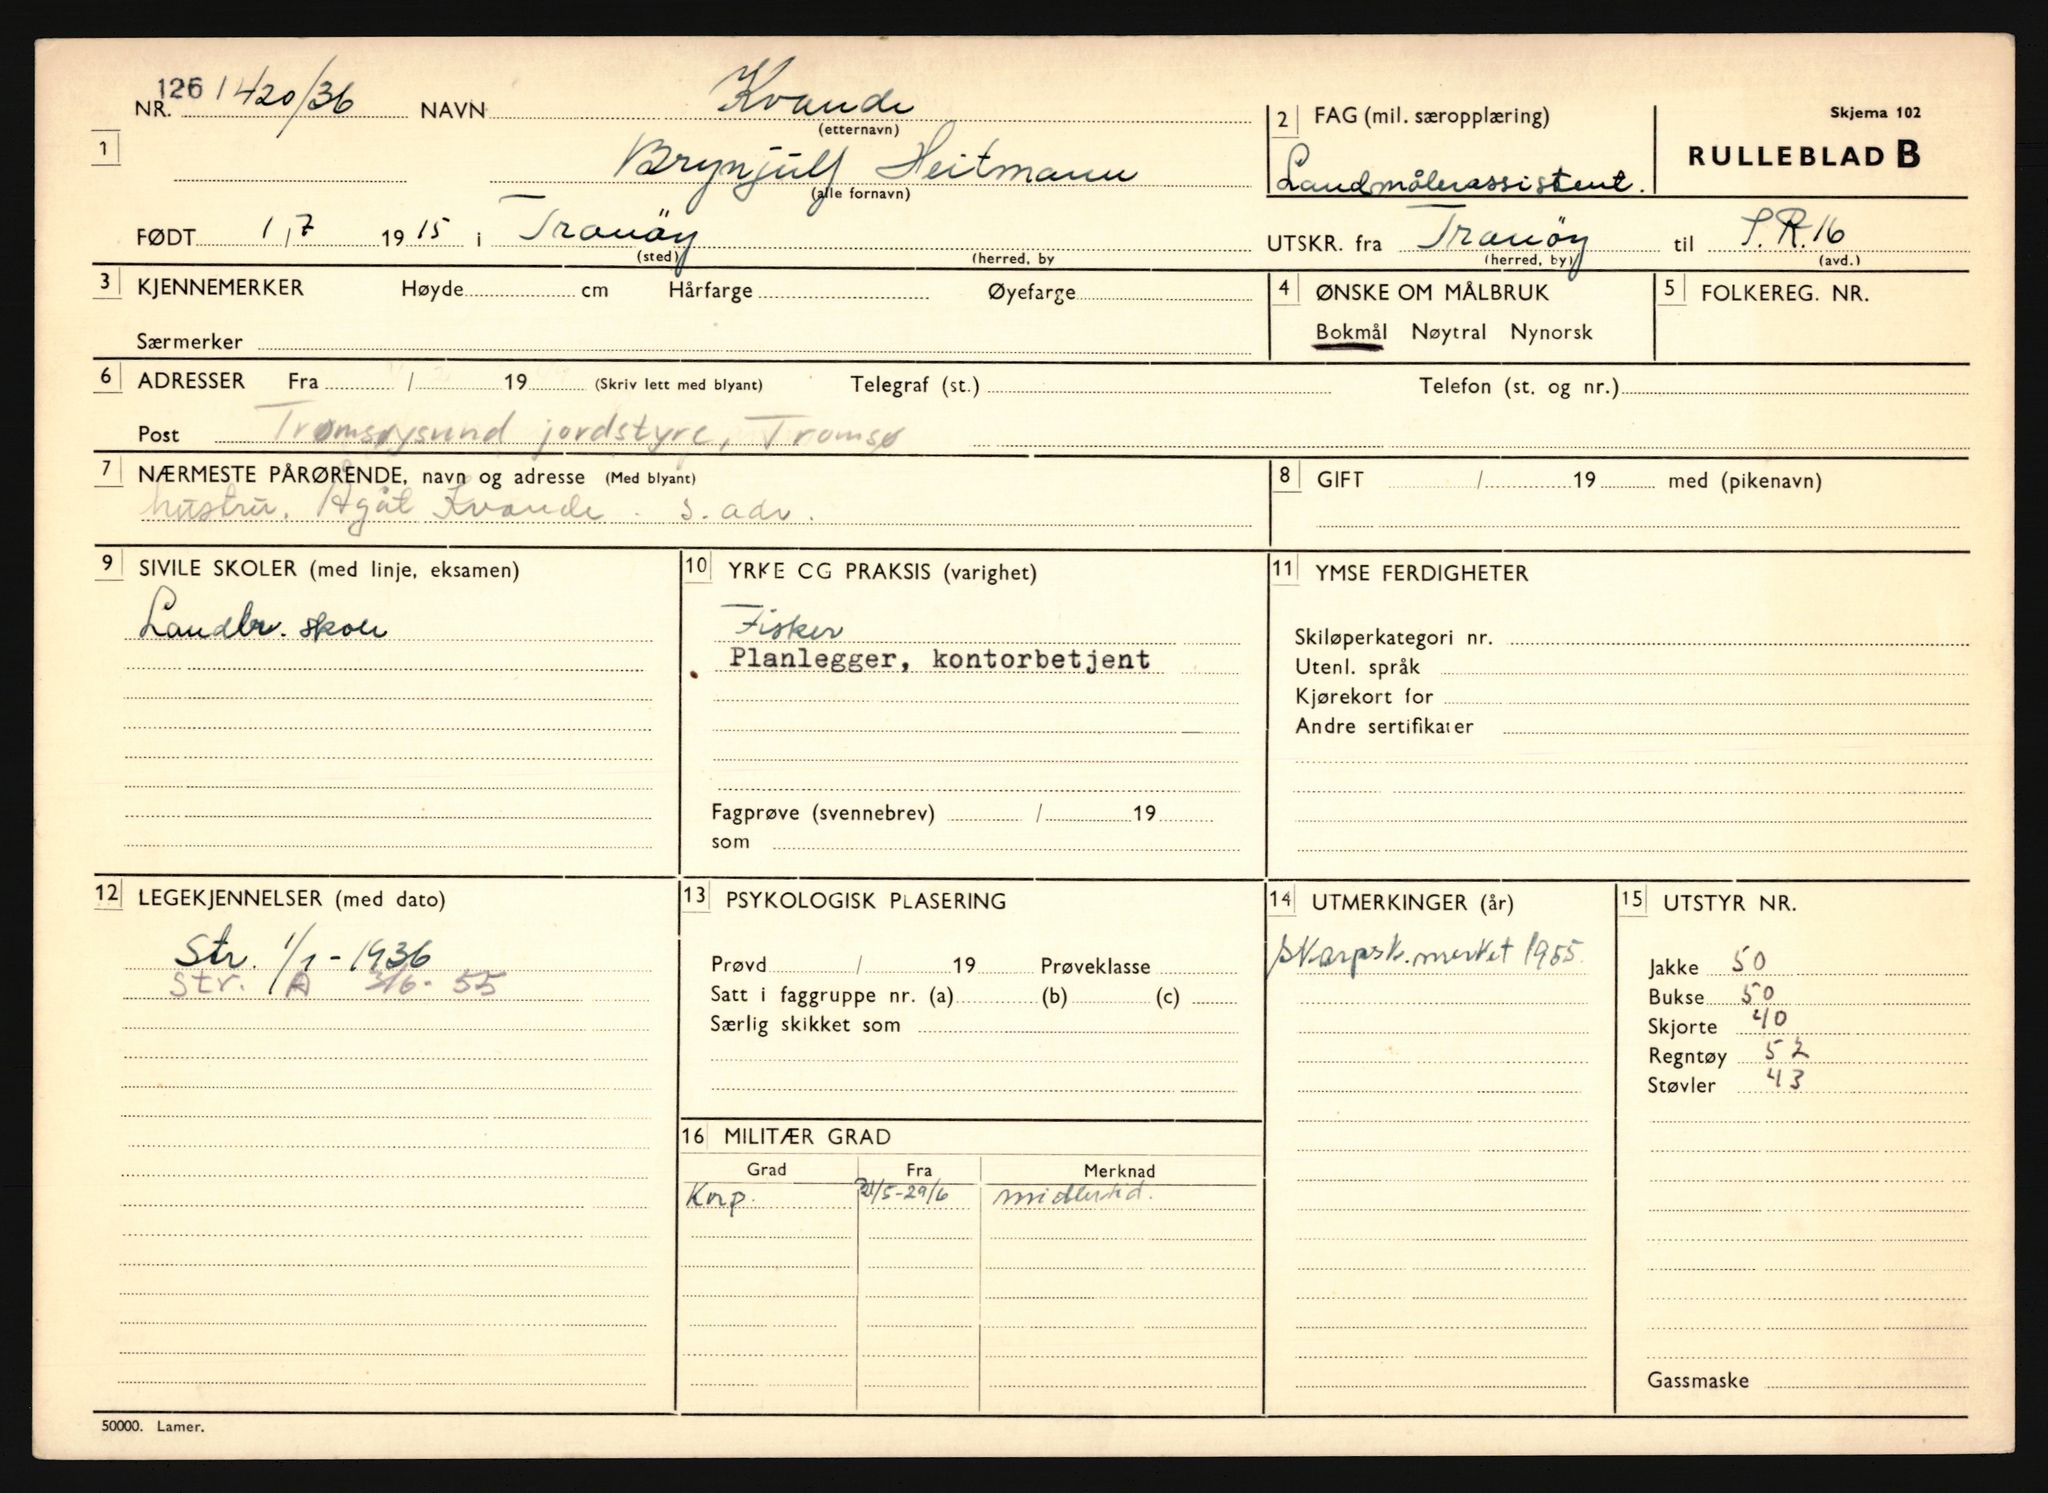 NR. 126 1420/36 NAVN Kvande
(etternavn)
1 Brynjulf Heitmann
(alle fornavn)
2 FAG (mil. særopplæring)
Landmålerassistent.
Skjema 102
RULLEBLAD B
FØDT 1/7 1915 i Tranöy
(sted) (herred, by
UTSKR. fra Tranöy til I.R.16
(herred, by) (avd.)
3 KJENNEMERKER Høyde cm Hårfarge Øyefarge
Særmerker
4 ØNSKE OM MÅLBRUK
Bokmål Nøytral Nynorsk
5 FOLKEREG. NR.
6 ADRESSER Fra / 19 (Skriv lett med blyant) Telegraf (st.) Telefon (st. og nr.)
Post Tromsøysund jordstyre, Tromsø
7 NÆRMESTE PÅRØRENDE, navn og adresse (Med blyant)
hustru. Agåt Kvande. s. adr.
8 GIFT / 19 med (pikenavn)
9 SIVILE SKOLER (med linje, eksamen)
Landbr. skole
10 YRKE OG PRAKSIS (varighet)
Fisker
Planlegger, kontorbetjent
Fagprøve (svennebrev) / 19
som
11 YMSE FERDIGHETER
Skiløperkategori nr.
Utenl. språk
Kjørekort for
Andre sertifikater
12 LEGEKJENNELSER (med dato)
Str. 1/1-1936
Str. A 3/6-55
13 PSYKOLOGISK PLASERING
Prøvd / 19 Prøveklasse
Satt i faggruppe nr. (a) (b) (c)
Særlig skikket som
14 UTMERKINGER (år)
Skarpsk.merket 1955.
15 UTSTYR NR.
Jakke 50
Bukse 50
Skjorte 40
Regntøy 52
Støvler 43
Gassmaske
16 MILITÆR GRAD
Grad Fra Merknad
Korp. 31/5-29/6 midlertid.
50000. Lamer.